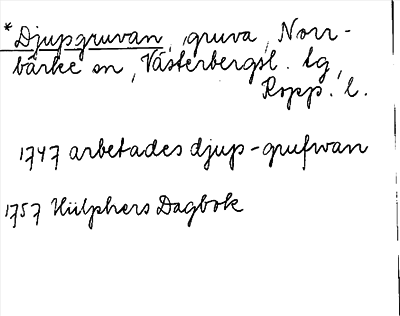 *Djupgruvan, gruva, Norr-
bärke sn, Västerbergsl. lg,
Kopp. l.
1747 arbetades djup-grufwan
1757 Hülphers Dagbok